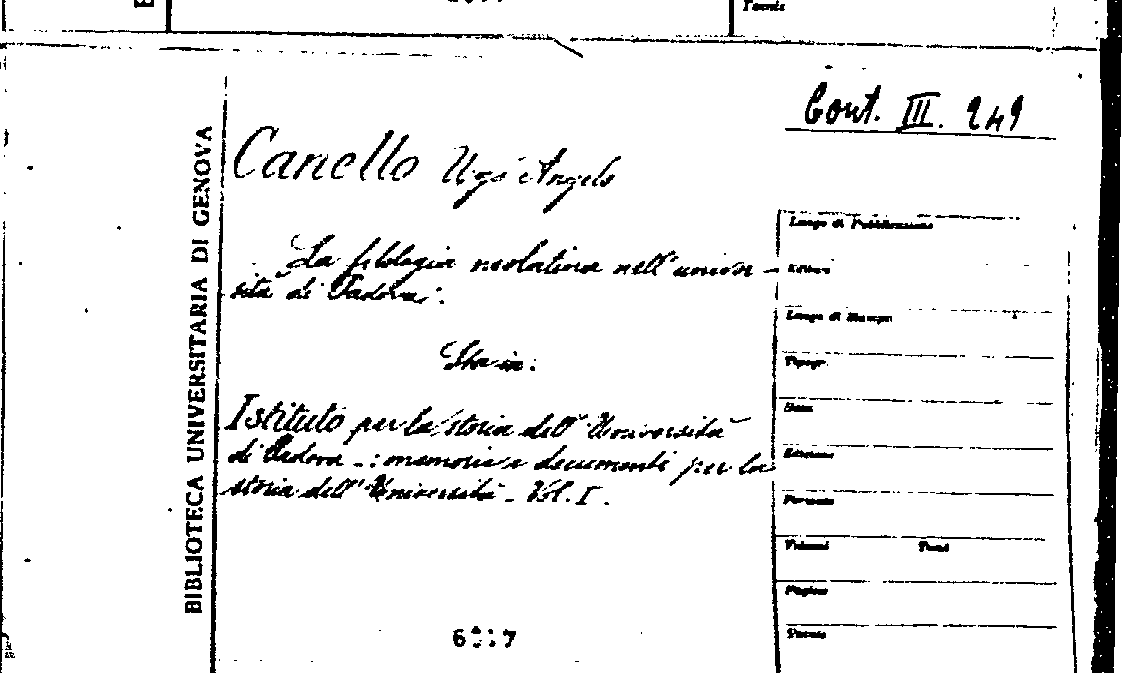 Fonte
Cont. III. 249
BIBLIOTECA UNIVERSITARIA DI GENOVA
Canello Ugo Angelo
La filologia neolatina nell'univer-
sità di Padova.
Sta in:
Istituto per la storia dell'Università
di Padova -: memorie e documenti per la
storia dell'Università - Vol. I.
Luogo di Pubblicazione
Editori
Luogo di Stampa
Tipogr.
Data
Edizione
Formato
Volumi Tomi
Pagine
Fonte